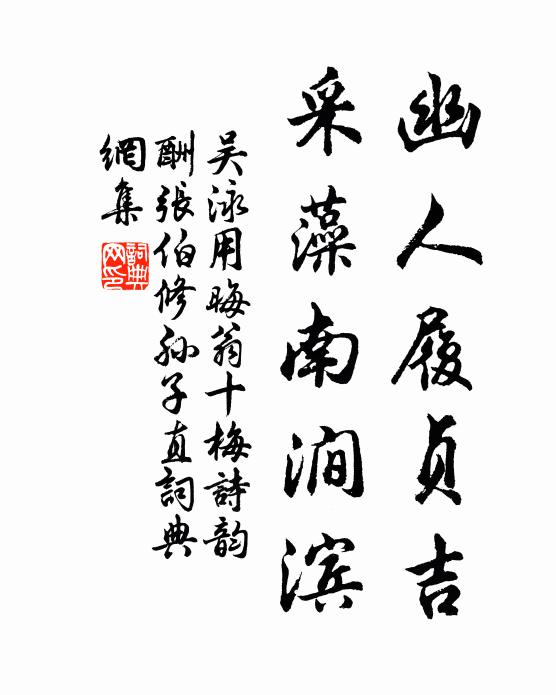 幽人履貞吉
采藻南澗滨
吴泳用晦翁十梅詩韵
酬張伯修孙子直詞典
網集
詞典網印